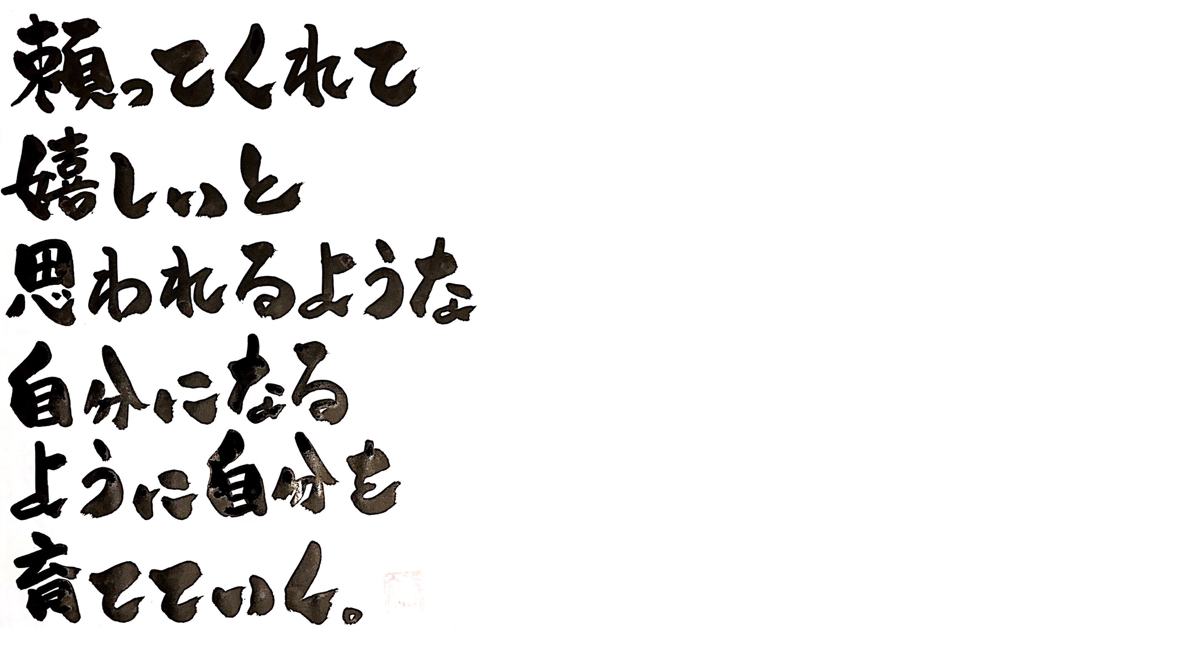 頼ってくれて
嬉しいと
思われるような
自分になる
ように自分を
育てていく。